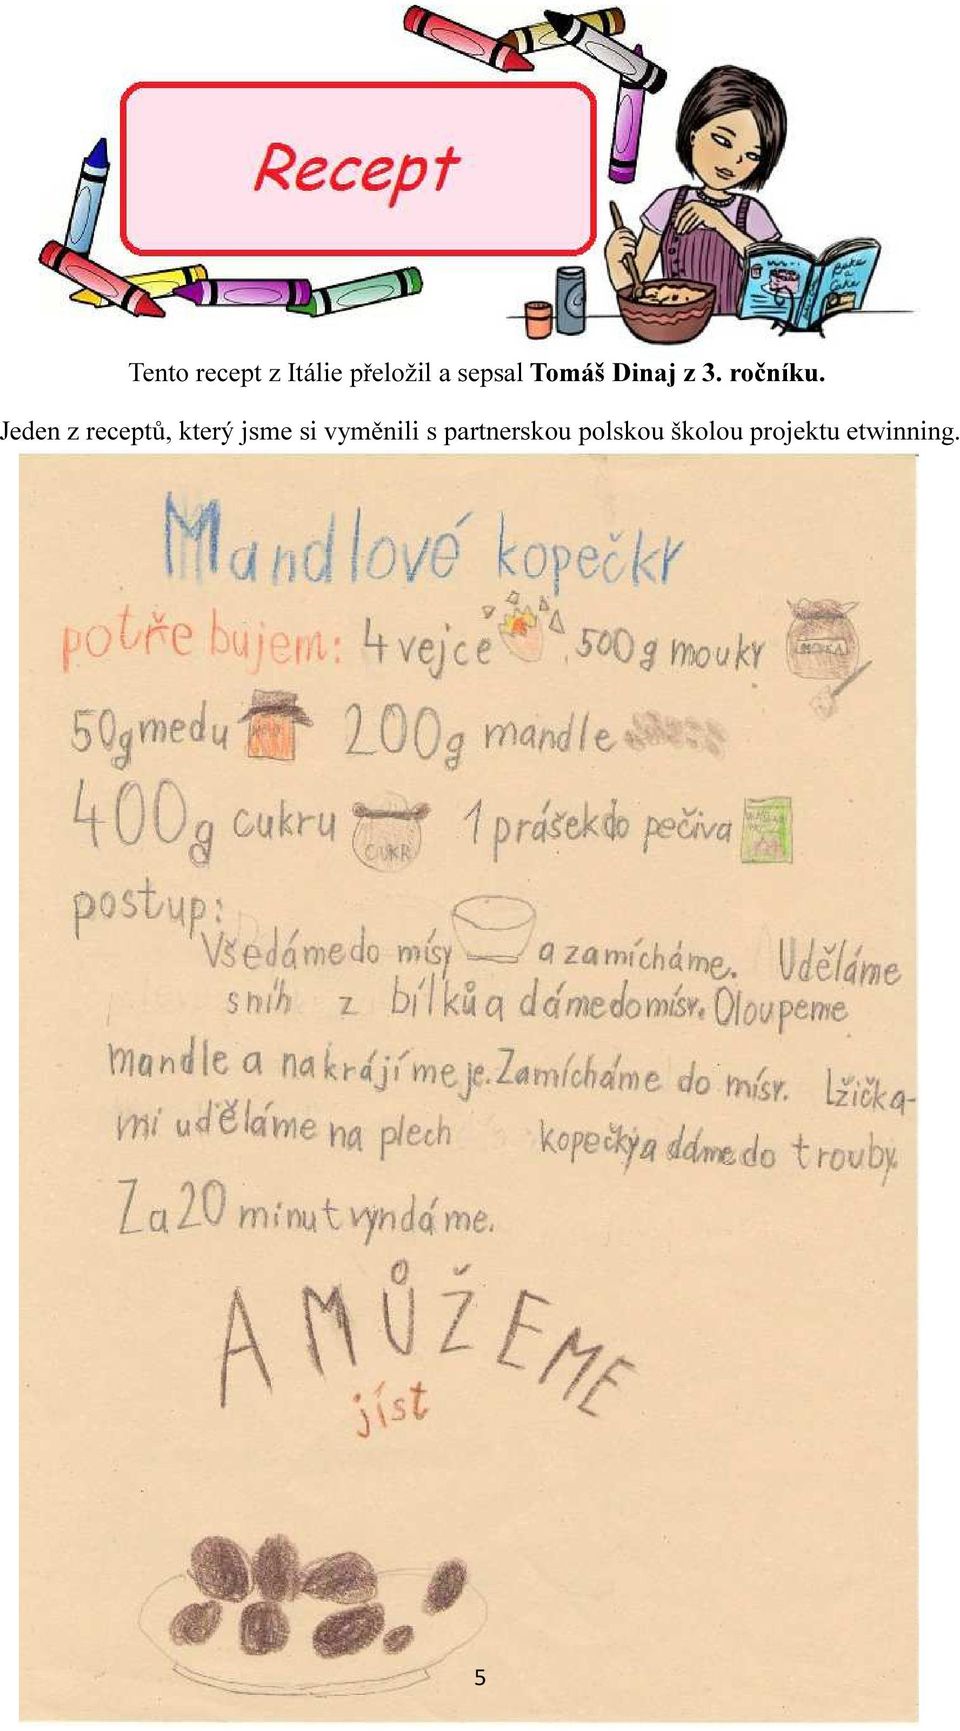 Recept
Bake a Cake
Tento recept z Itálie přeložil a sepsal Tomáš Dinaj z 3. ročníku.
Jeden z receptů, který jsme si vyměnili s partnerskou polskou školou projektu etwinning.
Mandlové kopečky
potřebujem: 4 vejce, 500g mouky
50g medu 200g mandle
400g cukru CUKR 1 prášek do pečiva
postup:
Vše dáme do mísy a zamícháme. Uděláme
sníh z bílků a dáme do mísy. Oloupeme
mandle a nakrájíme je. Zamícháme do mísy. Lžička-
mi uděláme na plech kopečky a dáme do trouby.
Za 20 minut vyndáme.
A MŮŽEME
jíst
5